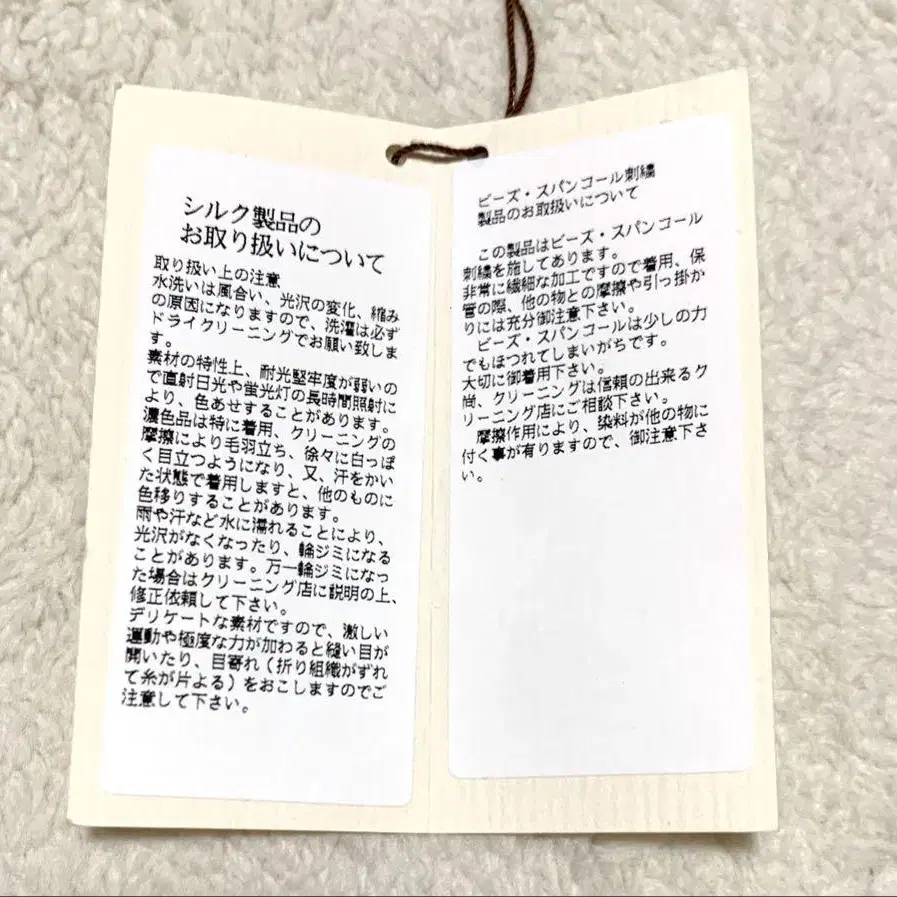 シルク製品の
お取り扱いについて
取り扱い上の注意
水洗いは風合い、光沢の変化、縮み
の原因になりますので、洗濯は必ず
ドライクリーニングでお願い致しま
す。
素材の特性上、耐光堅牢度が弱いの
で直射日光や蛍光灯の長時間照射に
より、色あせすることがあります。
濃色品は特に着用、クリーニングの
摩擦により毛羽立ち、徐々に白っぽ
く目立つようになり、又、汗をかい
た状態で着用しますと、他のものに
色移りすることがあります。
雨や汗など水に濡れることにより、
光沢がなくなったり、輪ジミになる
ことがあります。万一輪ジミになっ
た場合はクリーニング店に説明の上、
修正依頼して下さい。
デリケートな素材ですので、激しい
運動や極度な力が加わると縫い目が
開いたり、目寄れ（折り組織がずれ
て糸が片よる）をおこしますのでご
注意して下さい。
ビーズ・スパンコール刺繍
製品のお取扱いについて
この製品はビーズ・スパンコール
刺繍を施してあります。
非常に繊細な加工ですので着用、保
管の際、他の物との摩擦や引っ掛か
りには充分御注意下さい。
ビーズ・スパンコールは少しの力
でもほつれてしまいがちです。
大切に御着用下さい。
尚、クリーニングは信頼の出来るク
リーニング店にご相談下さい。
摩擦作用により、染料が他の物に
付く事が有りますので、御注意下さ
い。